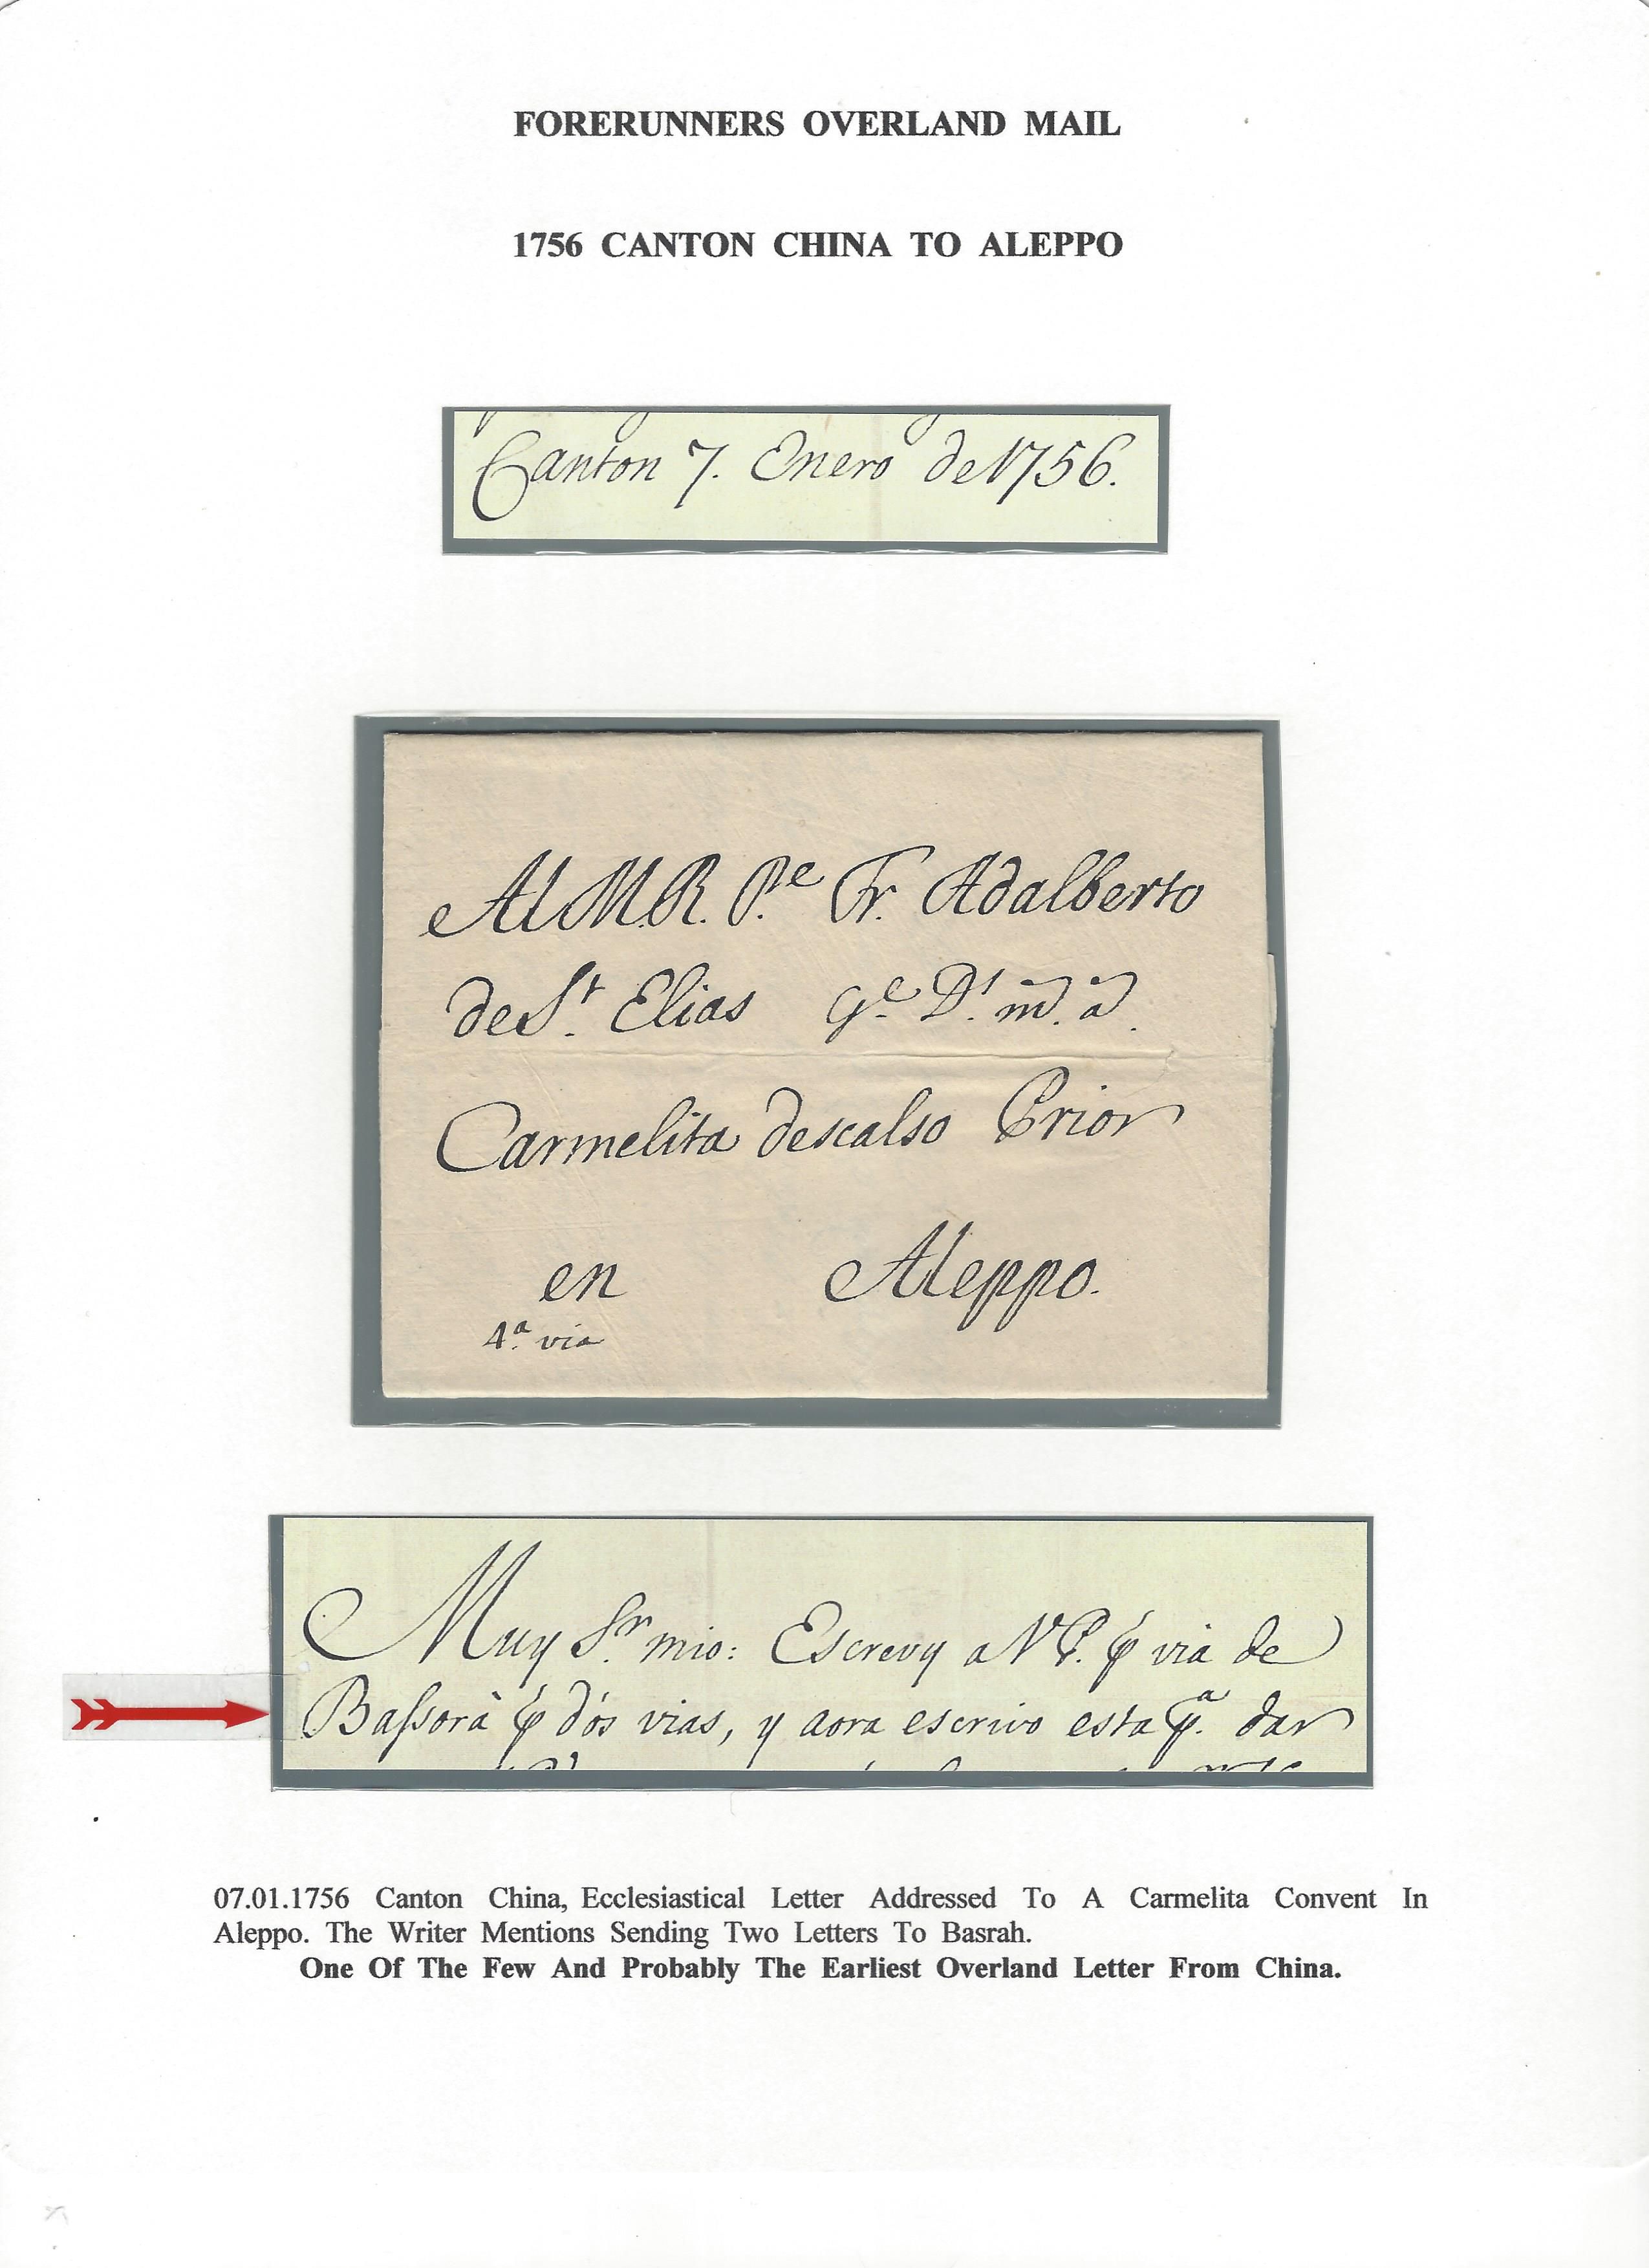 FORERUNNERS OVERLAND MAIL
1756 CANTON CHINA TO ALEPPO
Canton 7. Enero de 1756.
Al M.R. P.e Fr. Adalberto
de S.t Elias g.e D.s m.a a.s
Carmelita descalso Prior
en Aleppo.
4.a via
Muy S.r mio: Escrevy a V P. p via de
Bassorà p dós vias, y aora escrivo esta p.a dar
07.01.1756 Canton China, Ecclesiastical Letter Addressed To A Carmelita Convent In
Aleppo. The Writer Mentions Sending Two Letters To Basrah.
One Of The Few And Probably The Earliest Overland Letter From China.